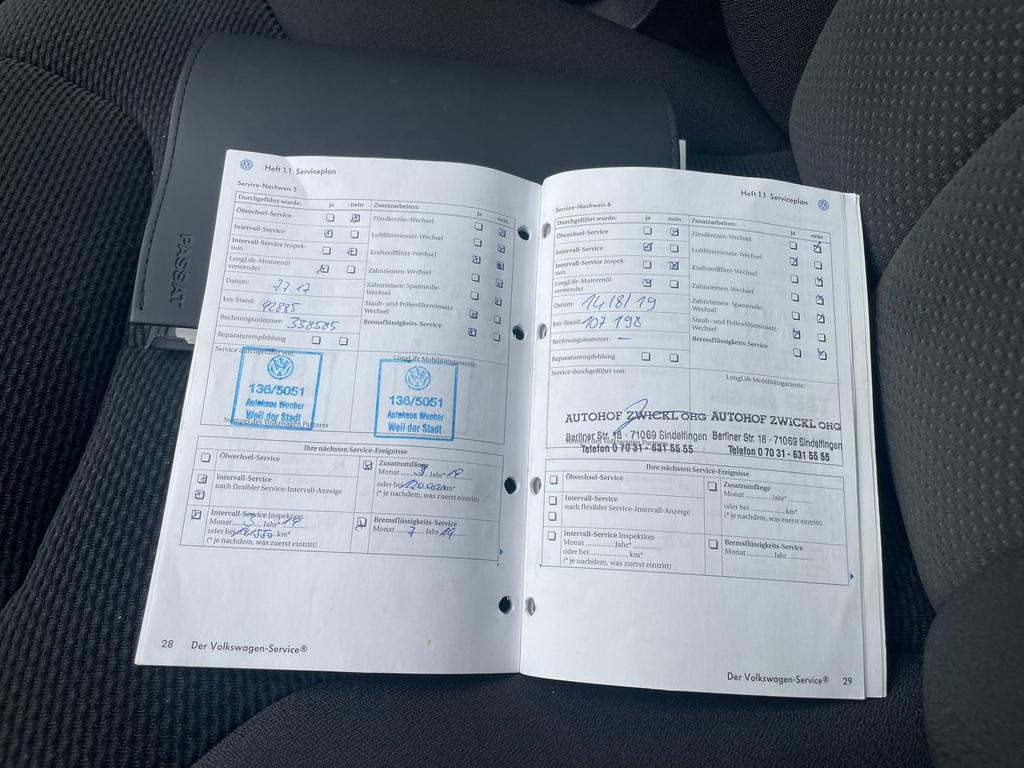 PASSAT
Heft 1.1 Serviceplan
Service-Nachweis 5
Durchgeführt wurde: ja nein
Ölwechsel-Service
Intervall-Service
Intervall-Service Inspek-
tion
LongLife-Motorenöl
verwendet
Datum: 7.7.17
km-Stand: 92885
Rechnungsnummer: 338585
Reparaturempfehlung
Zusatzarbeiten: ja nein
Zündkerzen-Wechsel
Luftfiltereinsatz-Wechsel
Kraftstofffilter-Wechsel
Zahnriemen-Wechsel
Zahnriemen: Spannrolle-
Wechsel
Staub- und Pollenfiltereinsatz-
Wechsel
Bremsflüssigkeits-Service
Service durchgeführt von:
LongLife Mobilitätsgarantie:
136/5051
Autohaus Weeber
Weil der Stadt
Stempel des Volkswagen Partners
136/5051
Autohaus Weeber
Weil der Stadt
Ihre nächsten Service-Ereignisse
Ölwechsel-Service
Intervall-Service
nach flexibler Service-Intervall-Anzeige
Intervall-Service Inspektion
Monat 3 Jahr* 19
oder bei km*
(* je nachdem, was zuerst eintritt)
Zusatzumfänge
Monat 3 Jahr* 19
oder bei 120.000 km*
(* je nachdem, was zuerst eintritt)
Bremsflüssigkeits-Service
Monat 7 Jahr 19
28 Der Volkswagen-Service®
Heft 1.1 Serviceplan
Service-Nachweis 6
Durchgeführt wurde: ja nein
Ölwechsel-Service
Intervall-Service
Intervall-Service Inspek-
tion
LongLife-Motorenöl
verwendet
Datum: 14/8/19
km-Stand: 107 198
Rechnungsnummer: –
Reparaturempfehlung
Zusatzarbeiten: ja nein
Zündkerzen-Wechsel
Luftfiltereinsatz-Wechsel
Kraftstofffilter-Wechsel
Zahnriemen-Wechsel
Zahnriemen: Spannrolle-
Wechsel
Staub- und Pollenfiltereinsatz-
Wechsel
Bremsflüssigkeits-Service
Service durchgeführt von:
LongLife Mobilitätsgarantie:
AUTOHOF ZWICKL OHG
Berliner Str. 18 · 71069 Sindelfingen
Telefon 0 70 31 - 631 55 55
AUTOHOF ZWICKL OHG
Berliner Str. 18 · 71069 Sindelfingen
Telefon 0 70 31 - 631 55 55
Ihre nächsten Service-Ereignisse
Ölwechsel-Service
Intervall-Service
nach flexibler Service-Intervall-Anzeige
Intervall-Service Inspektion
Monat Jahr*
oder bei km*
(* je nachdem, was zuerst eintritt)
Zusatzumfänge
Monat Jahr*
oder bei km*
(* je nachdem, was zuerst eintritt)
Bremsflüssigkeits-Service
Monat Jahr
Der Volkswagen-Service® 29